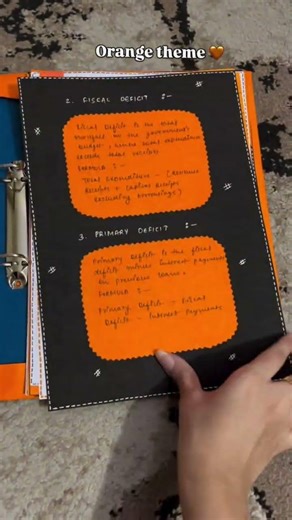 Orange theme 🧡
2. FISCAL DEFICIT :-
Fiscal Deficit is the
in the government's
budget, where total expenditure
exceeds total
FORMULA :-
Total Expenditure - (Revenue
Receipts + Capital Receipts
excluding borrowings)
3. PRIMARY DEFICIT :-
Primary Deficit is the fiscal
deficit minus interest payments
on previous loans.
FORMULA :-
Primary Deficit = Fiscal
Deficit - Interest Payments